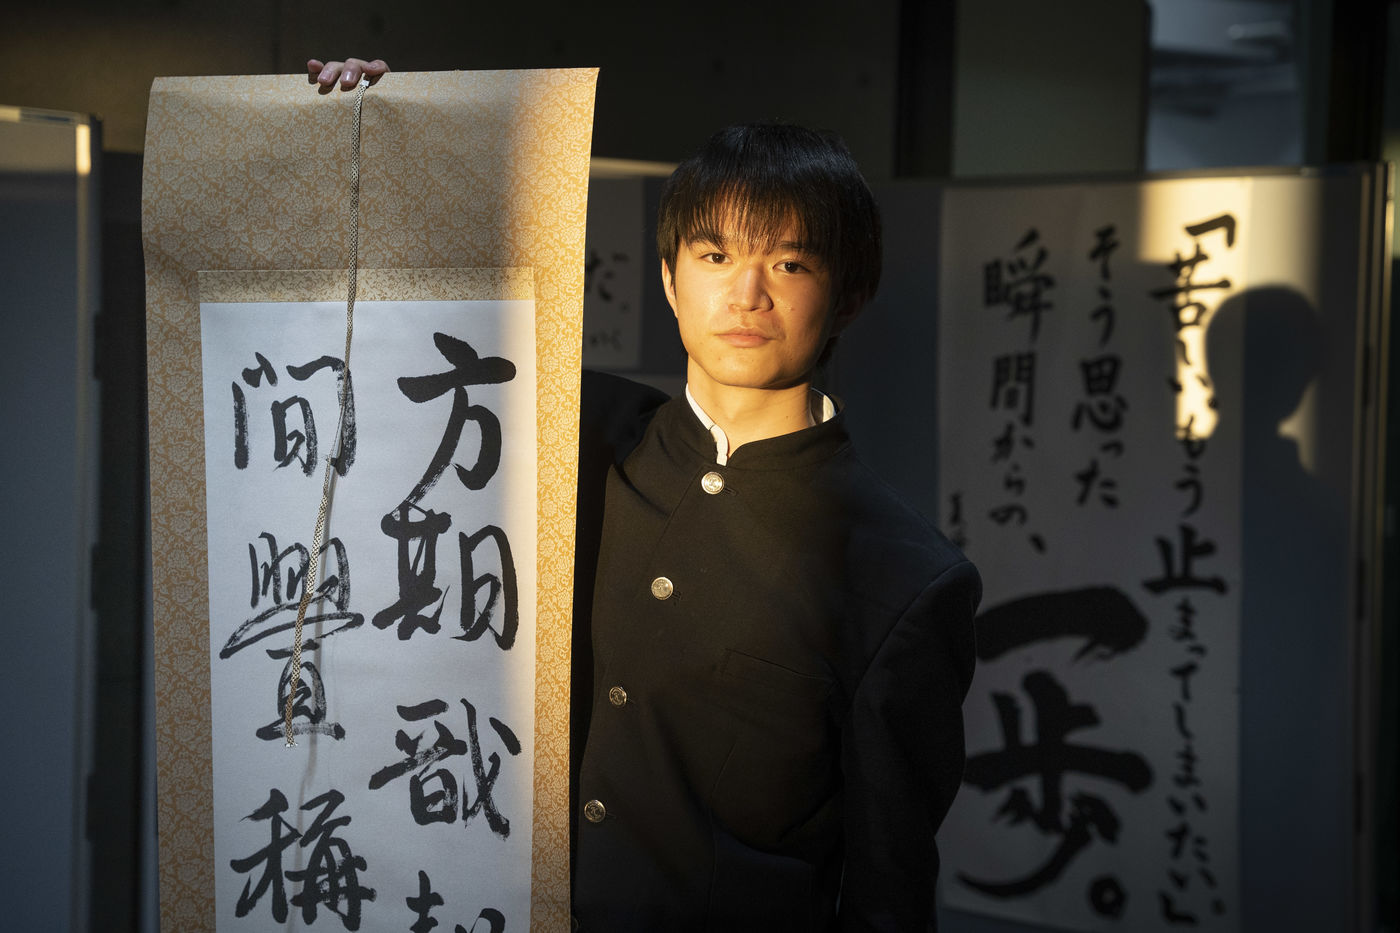 方期戩
間
稱
「苦しいもう止まってしまいたい」と
そう思った
瞬間からの、
一歩。
だ。